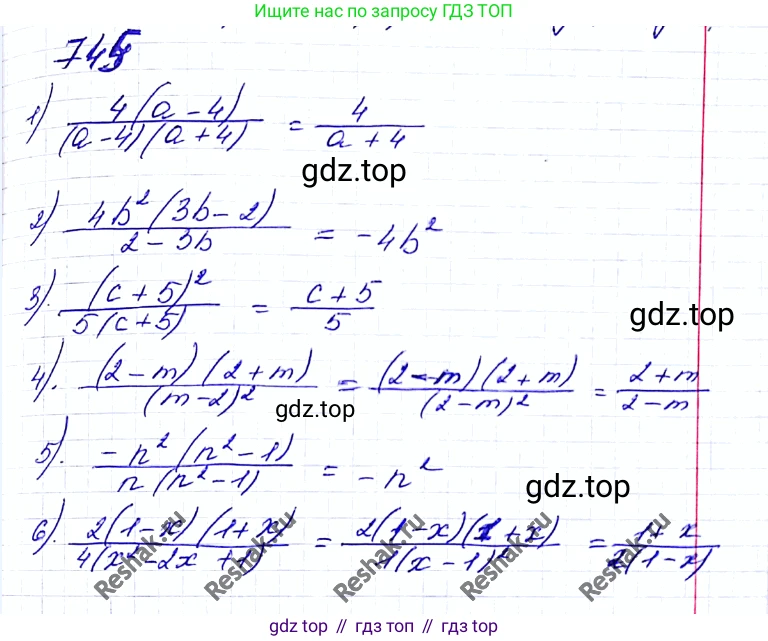 Ищите нас по запросу ГДЗ ТОП
745
1) 4(a-4) / (a-4)(a+4) = 4 / a+4
gdz.top
2) 4b²(3b-2) / 2-3b = -4b²
3). (c+5)² / 5(c+5) = c+5 / 5
gdz.top
4). (2-m)(2+m) / (m-2)² = (2-m)(2+m) / (2-m)² = 2+m / 2-m
gdz.top
5). -n²(n²-1) / n(n²-1) = -n²
gdz.top
6). 2(1-x)(1+x) / 4(x²-2x+1) = 2(1-x)(1+x) / 4(x-1)² = 1+x / 2(1-x)
Reshak.ru Reshak.ru Reshak.ru Reshak.ru Reshak.ru
gdz top // гдз топ // гдз top